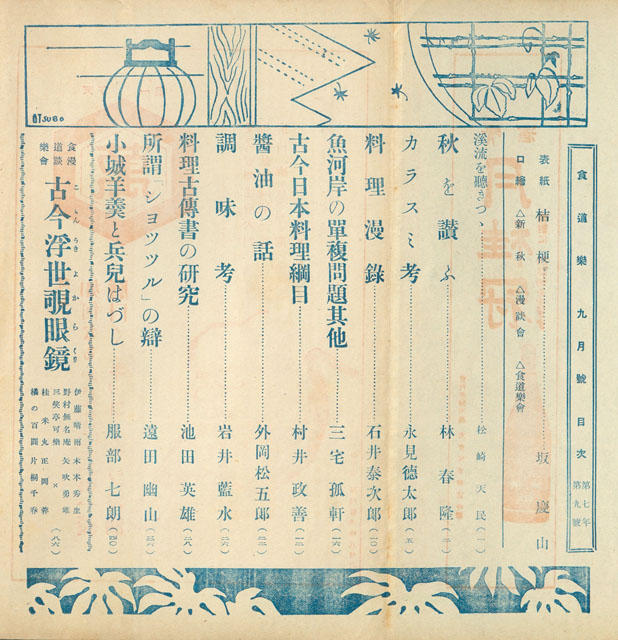 食道樂 九月號 目次 第七年 第九號
表紙 桔梗……坂慶山
口繪 △新秋 △漫談會 △食道樂會
溪流を聽きつゝ……松崎天民(一)
秋を讃ふ……林春隆(二)
カラスミ考……永見德太郎(五)
料理漫錄……石井泰次郎(一〇)
魚河岸の單複問題其他……三宅孤軒(一六)
古今日本料理綱目……村井政善(一三)
醬油の話……外岡松五郎(二二)
調味考……岩井藍水
料理古傳書の研究……池田英雄(二八)
所謂「ショツツル」の辯……遠田幽山(三六)
小城羊羹と兵兒はづし……服部七朗(四〇)
食道樂漫談會
古今浮世覗眼鏡
ここんうきよからくり
伊藤晴雨 木本秀生
野村無名庵 矢吹勇雄
三笑亭可樂
桂米丸 正岡蓉
橘の百圓 片桐千春
(八六)
OTSUBO